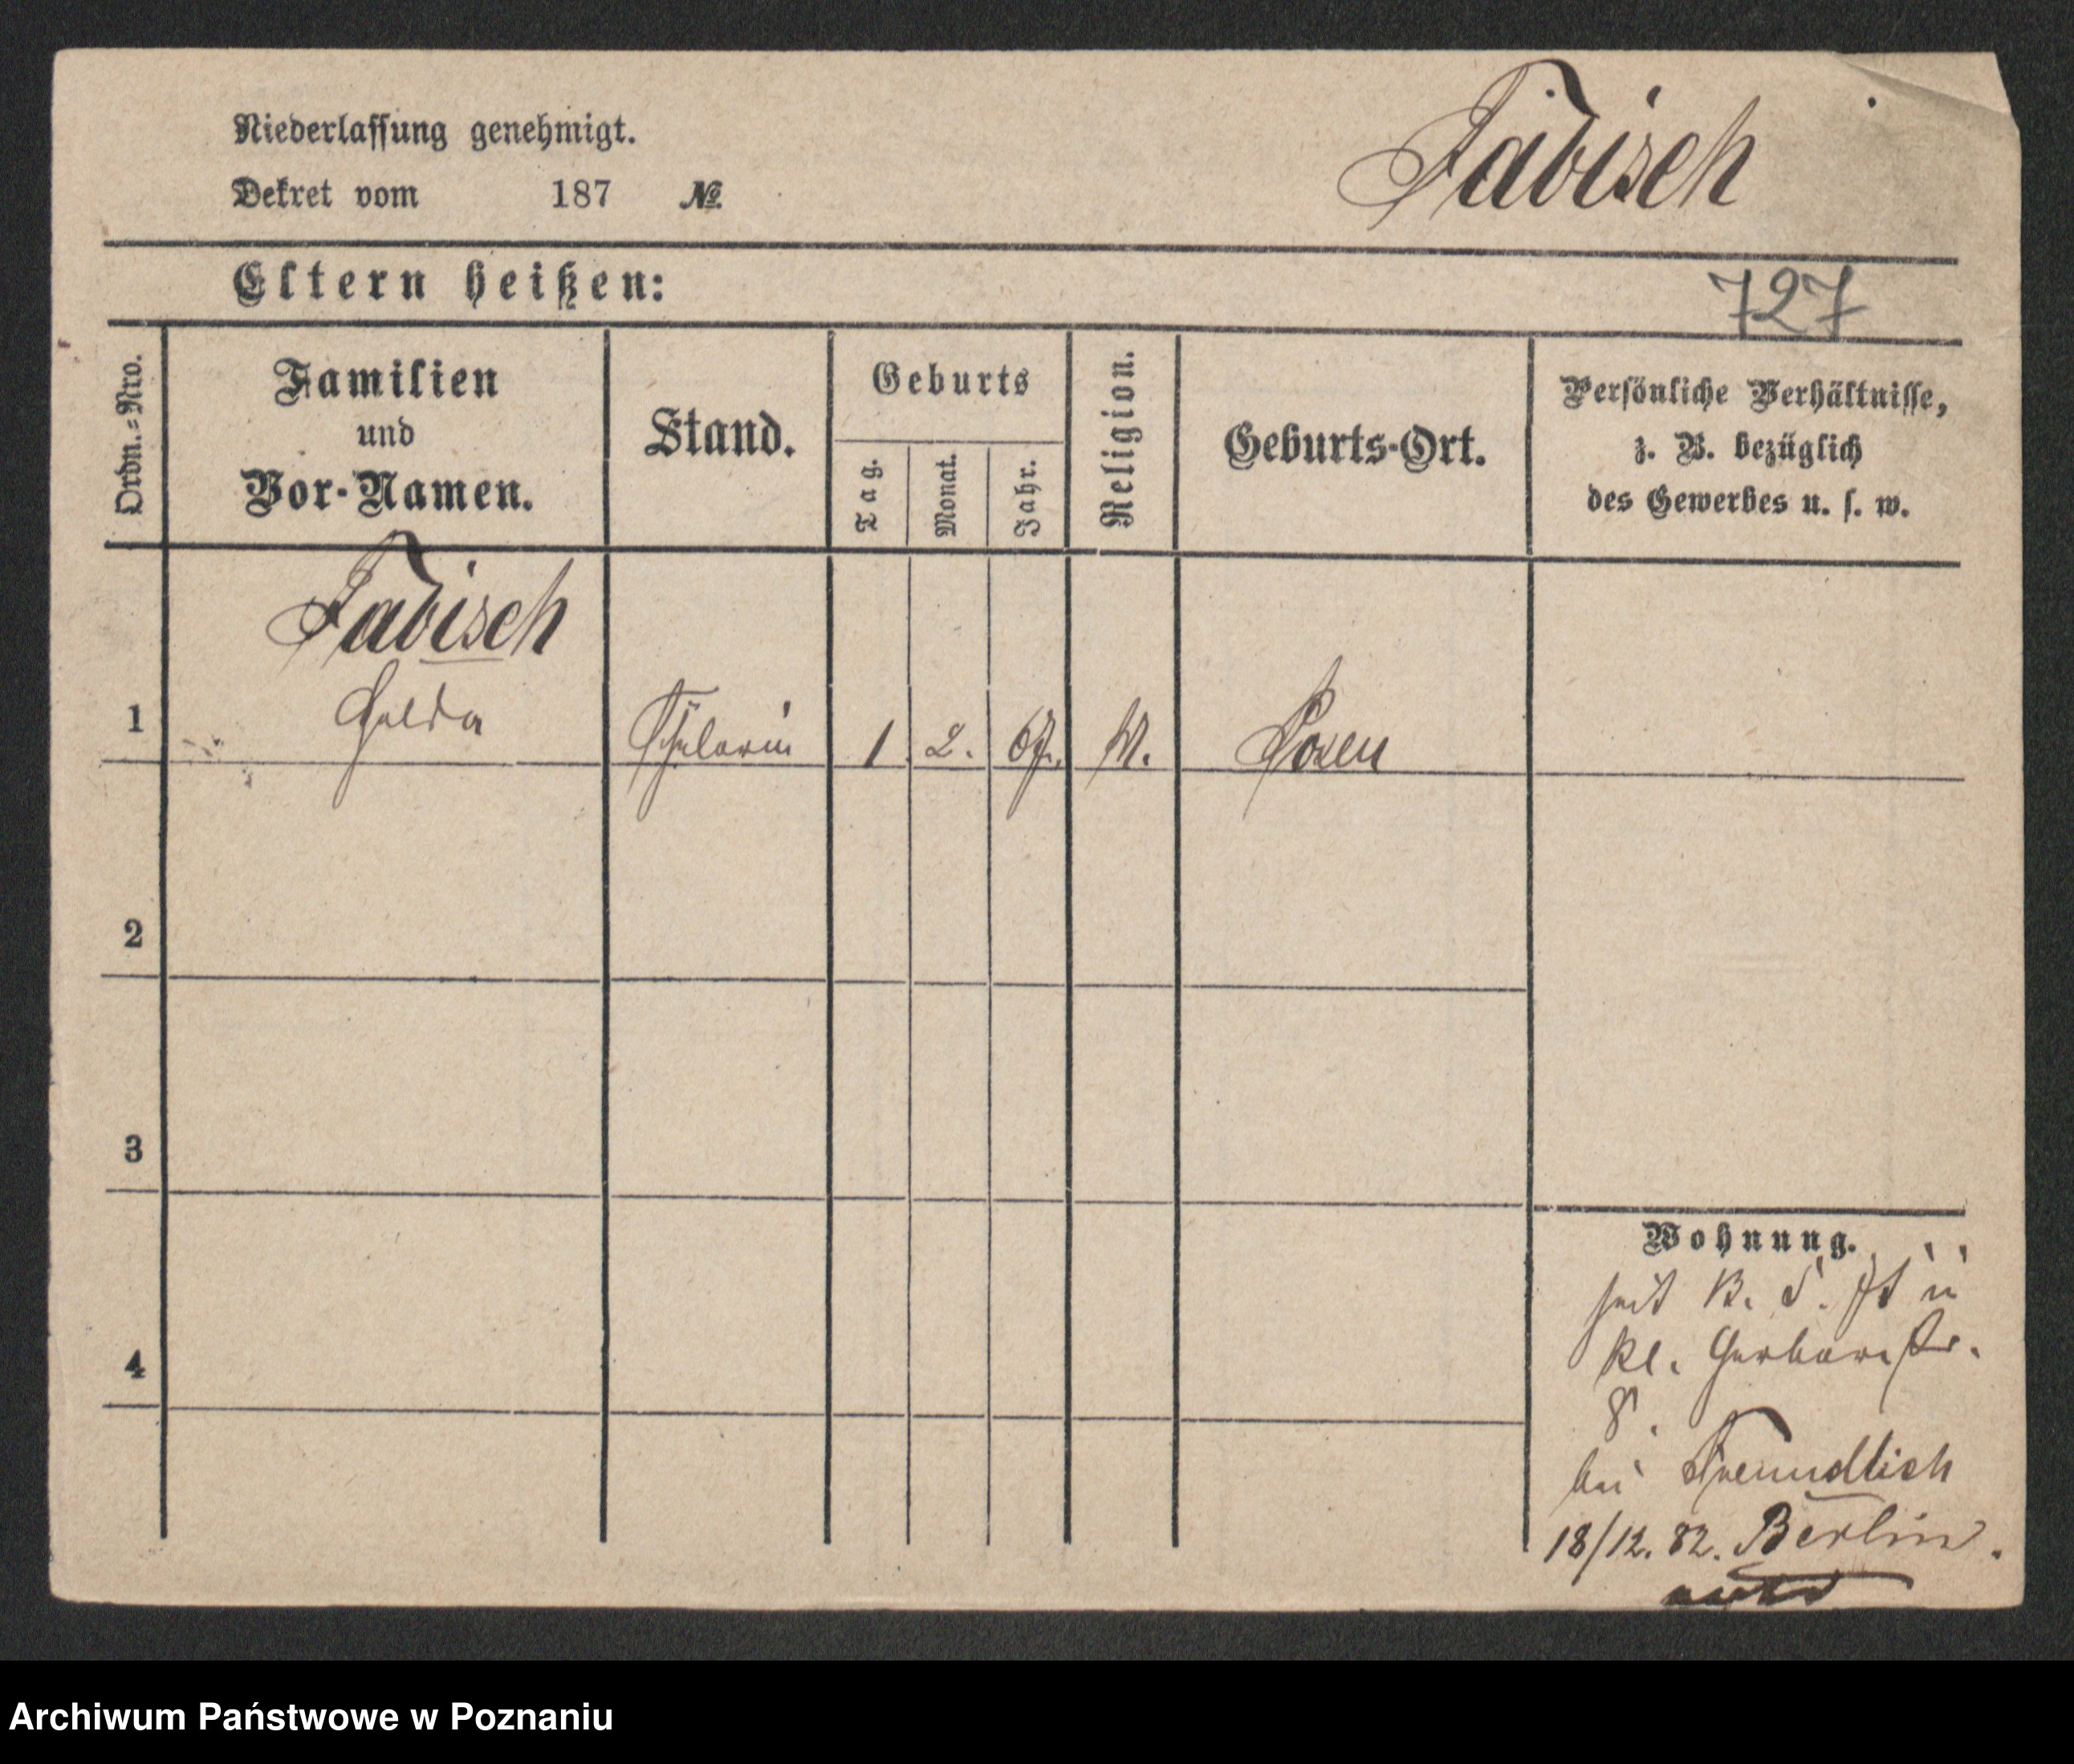 Niederlassung genehmigt.
Dekret vom 187 №
Fabisch
Eltern heißen:
727
Ordn.=Nro.
Familien
und
Vor-Namen.
Stand.
Geburts
Tag.
Monat.
Jahr.
Religion.
Geburts-Ort.
Persönliche Verhältnisse,
z. B. bezüglich
des Gewerbes u. s. w.
Fabisch
1 Golda Schülerin 1 2. 67. M. Posen
2
3
4
Wohnung.
seit
kl. Gerberstr.
8.
bei Freundlich
18/12. 82. Berlin.
Archiwum Państwowe w Poznaniu